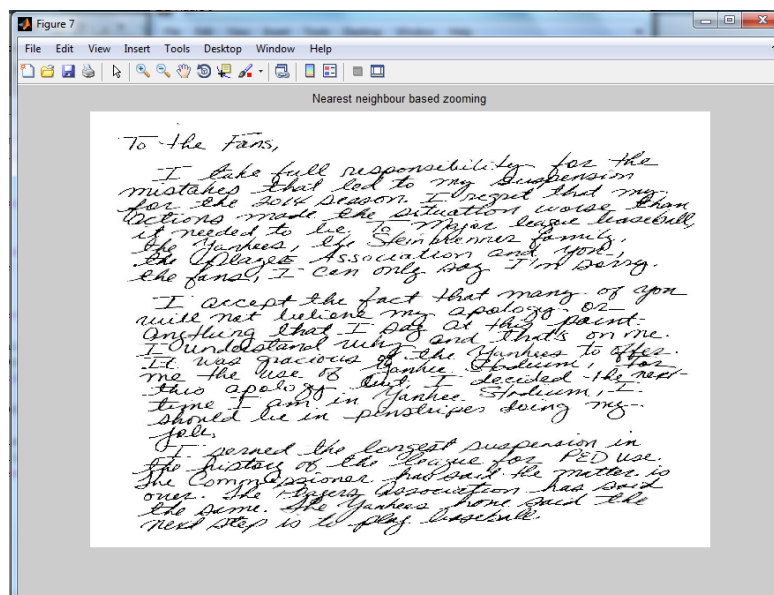 Figure 7
File Edit View Insert Tools Desktop Window Help
Nearest neighbour based zooming
To the Fans,
I take full responsibility for the
mistakes that led to my suspension
for the 2014 season. I regret that my
actions made the situation worse than
it needed to be. To Major league baseball,
the Yankees, the Steinbrenner family,
the Players Association and you,
the fans, I can only say I'm sorry.
I accept the fact that many of you
will not believe my apology or
anything that I say at this point.
I understand why and that's on me.
It was gracious of the Yankees to offer
me the use of Yankee Stadium, for
this apology but, I decided the next
time I am in Yankee Stadium, I
should be in pinstripes doing my
job.
I served the longest suspension in
the history of the league for PED use.
The Commissioner has said the matter is
over. The Players Association has said
the same. The Yankees have said the
next step is to play baseball.